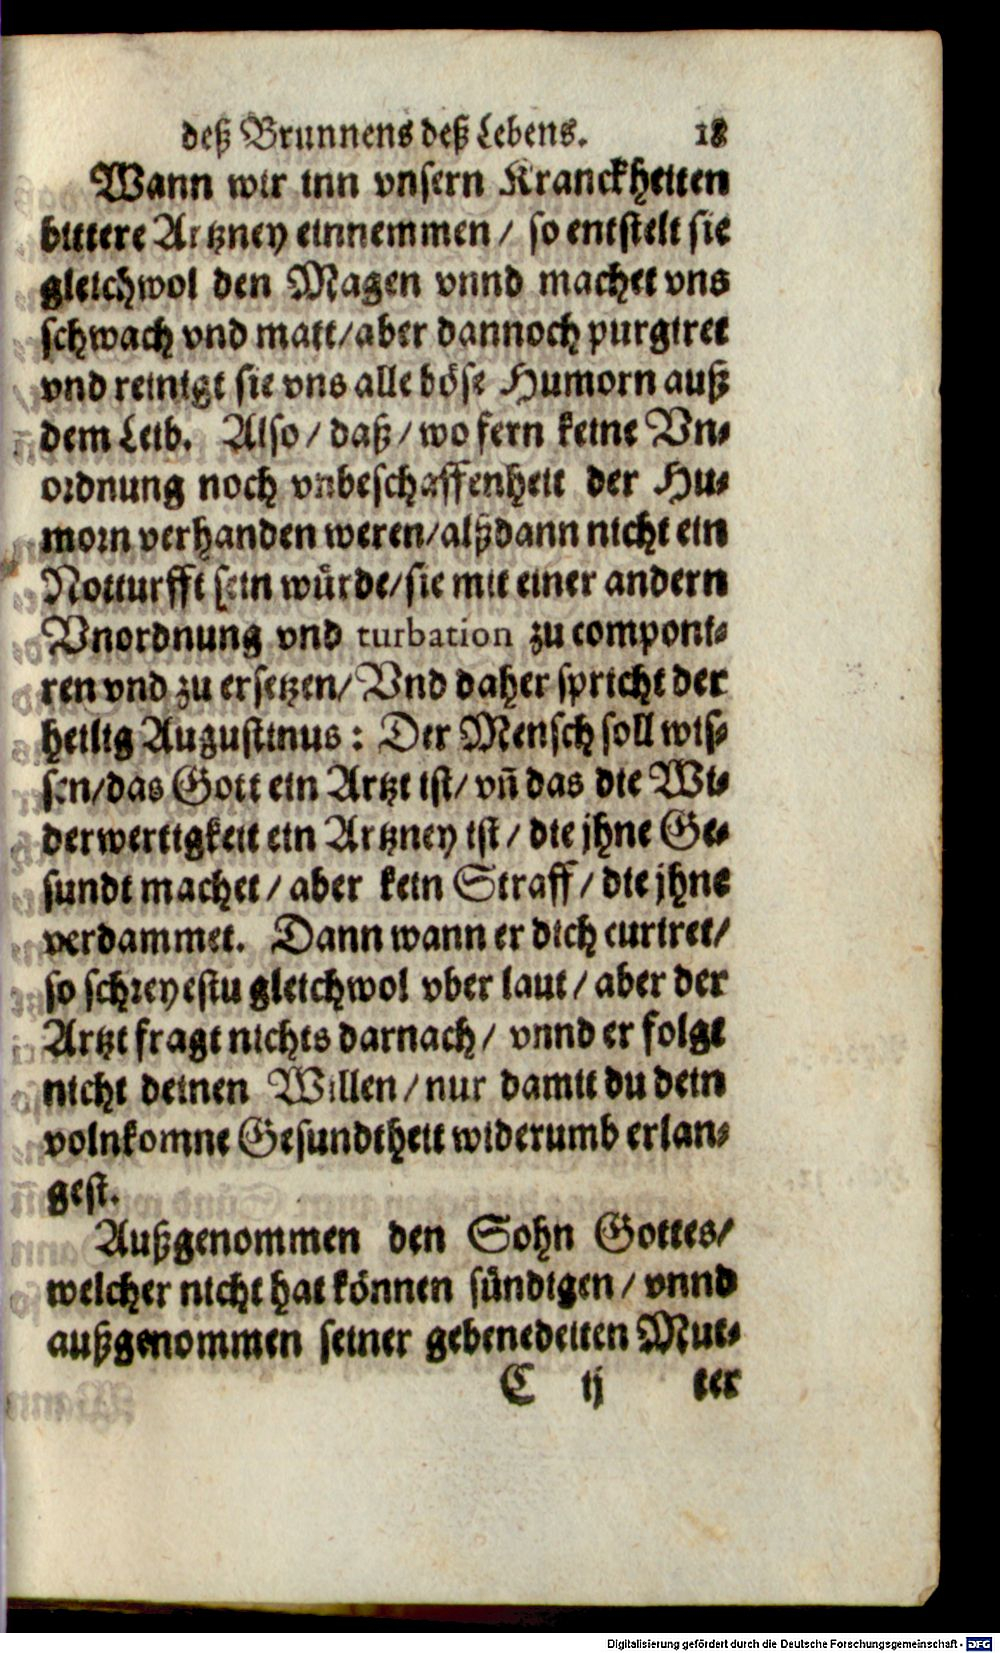 deß Brunnens deß Lebens. 18
Wann wir inn vnsern Kranckheiten
bittere Artzney einnemmen / so entstelt sie
gleichwol den Magen vnnd machet vns
schwach vnd matt / aber dannoch purgiret
vnd reinigt sie vns alle böse Humorn auß
dem Leib. Also / daß / wo fern keine Vn-
ordnung noch vnbeschaffenheit der Hu-
morn verhanden weren / alßdann nicht ein
Notturfft sein würde / sie mit einer andern
Vnordnung vnd turbation zu componi-
ren vnd zu ersetzen / Vnd daher spricht der
heilig Augustinus : Der Mensch soll wis-
sen / das Gott ein Artzt ist / vn̄ das die Wi-
derwertigkeit ein Artzney ist / die jhne Ge-
sundt machet / aber kein Straff / die jhne
verdammet. Dann wann er dich curiret /
so schreyestu gleichwol vber laut / aber der
Artzt fragt nichts darnach / vnnd er folgt
nicht deinen Willen / nur damit du dein
volnkomne Gesundtheit widerumb erlan-
gest.
Außgenommen den Sohn Gottes /
welcher nicht hat können sündigen / vnnd
außgenommen seiner gebenedeiten Mut-
C ij ter
Digitalisierung gefördert durch die Deutsche Forschungsgemeinschaft - DFG